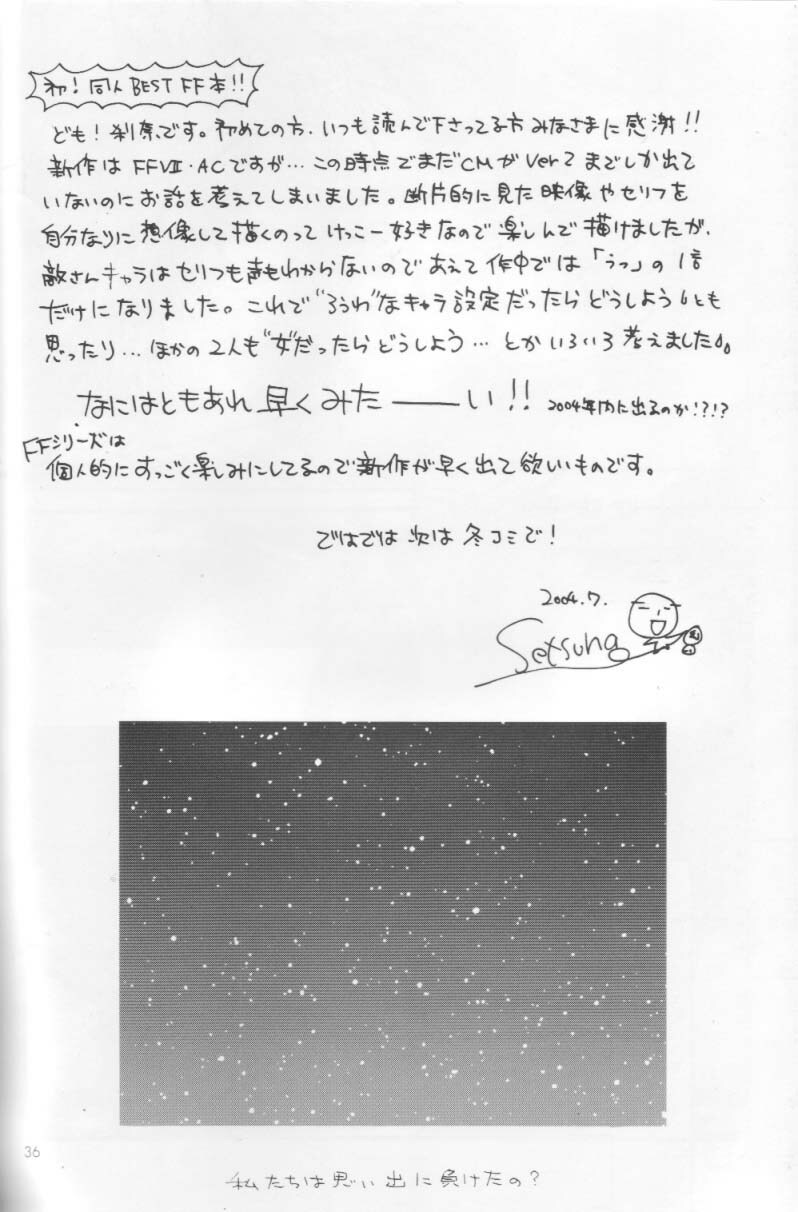 初！同人BEST FF本!!
ども！刹奈です。初めての方、いつも読んで下さってる方みなさまに感謝!!
新作はFFVII・ACですが…この時点でまだCMがVer2までしか出て
いないのにお話を考えてしまいました。断片的に見た映像やセリフを
自分なりに想像して描くのってけっこー好きなので楽しんで描けましたが、
敵さんキャラはセリフも声もわからないのであえて作中では「うっ」の1音
だけになりました。これで"ろうわ"なキャラ設定だったらどうしようとも
思ったり…ほかの2人も"女"だったらどうしよう…とかいろいろ考えました。
なにはともあれ早くみたーーい!!
2004年内に出るのか!?!?
FFシリーズは
個人的にすっごく楽しみにしてるので新作が早く出て欲しいものです。
ではでは次は冬コミで！
2004.7.
Setsuna
36
私たちは思い出に負けたの？